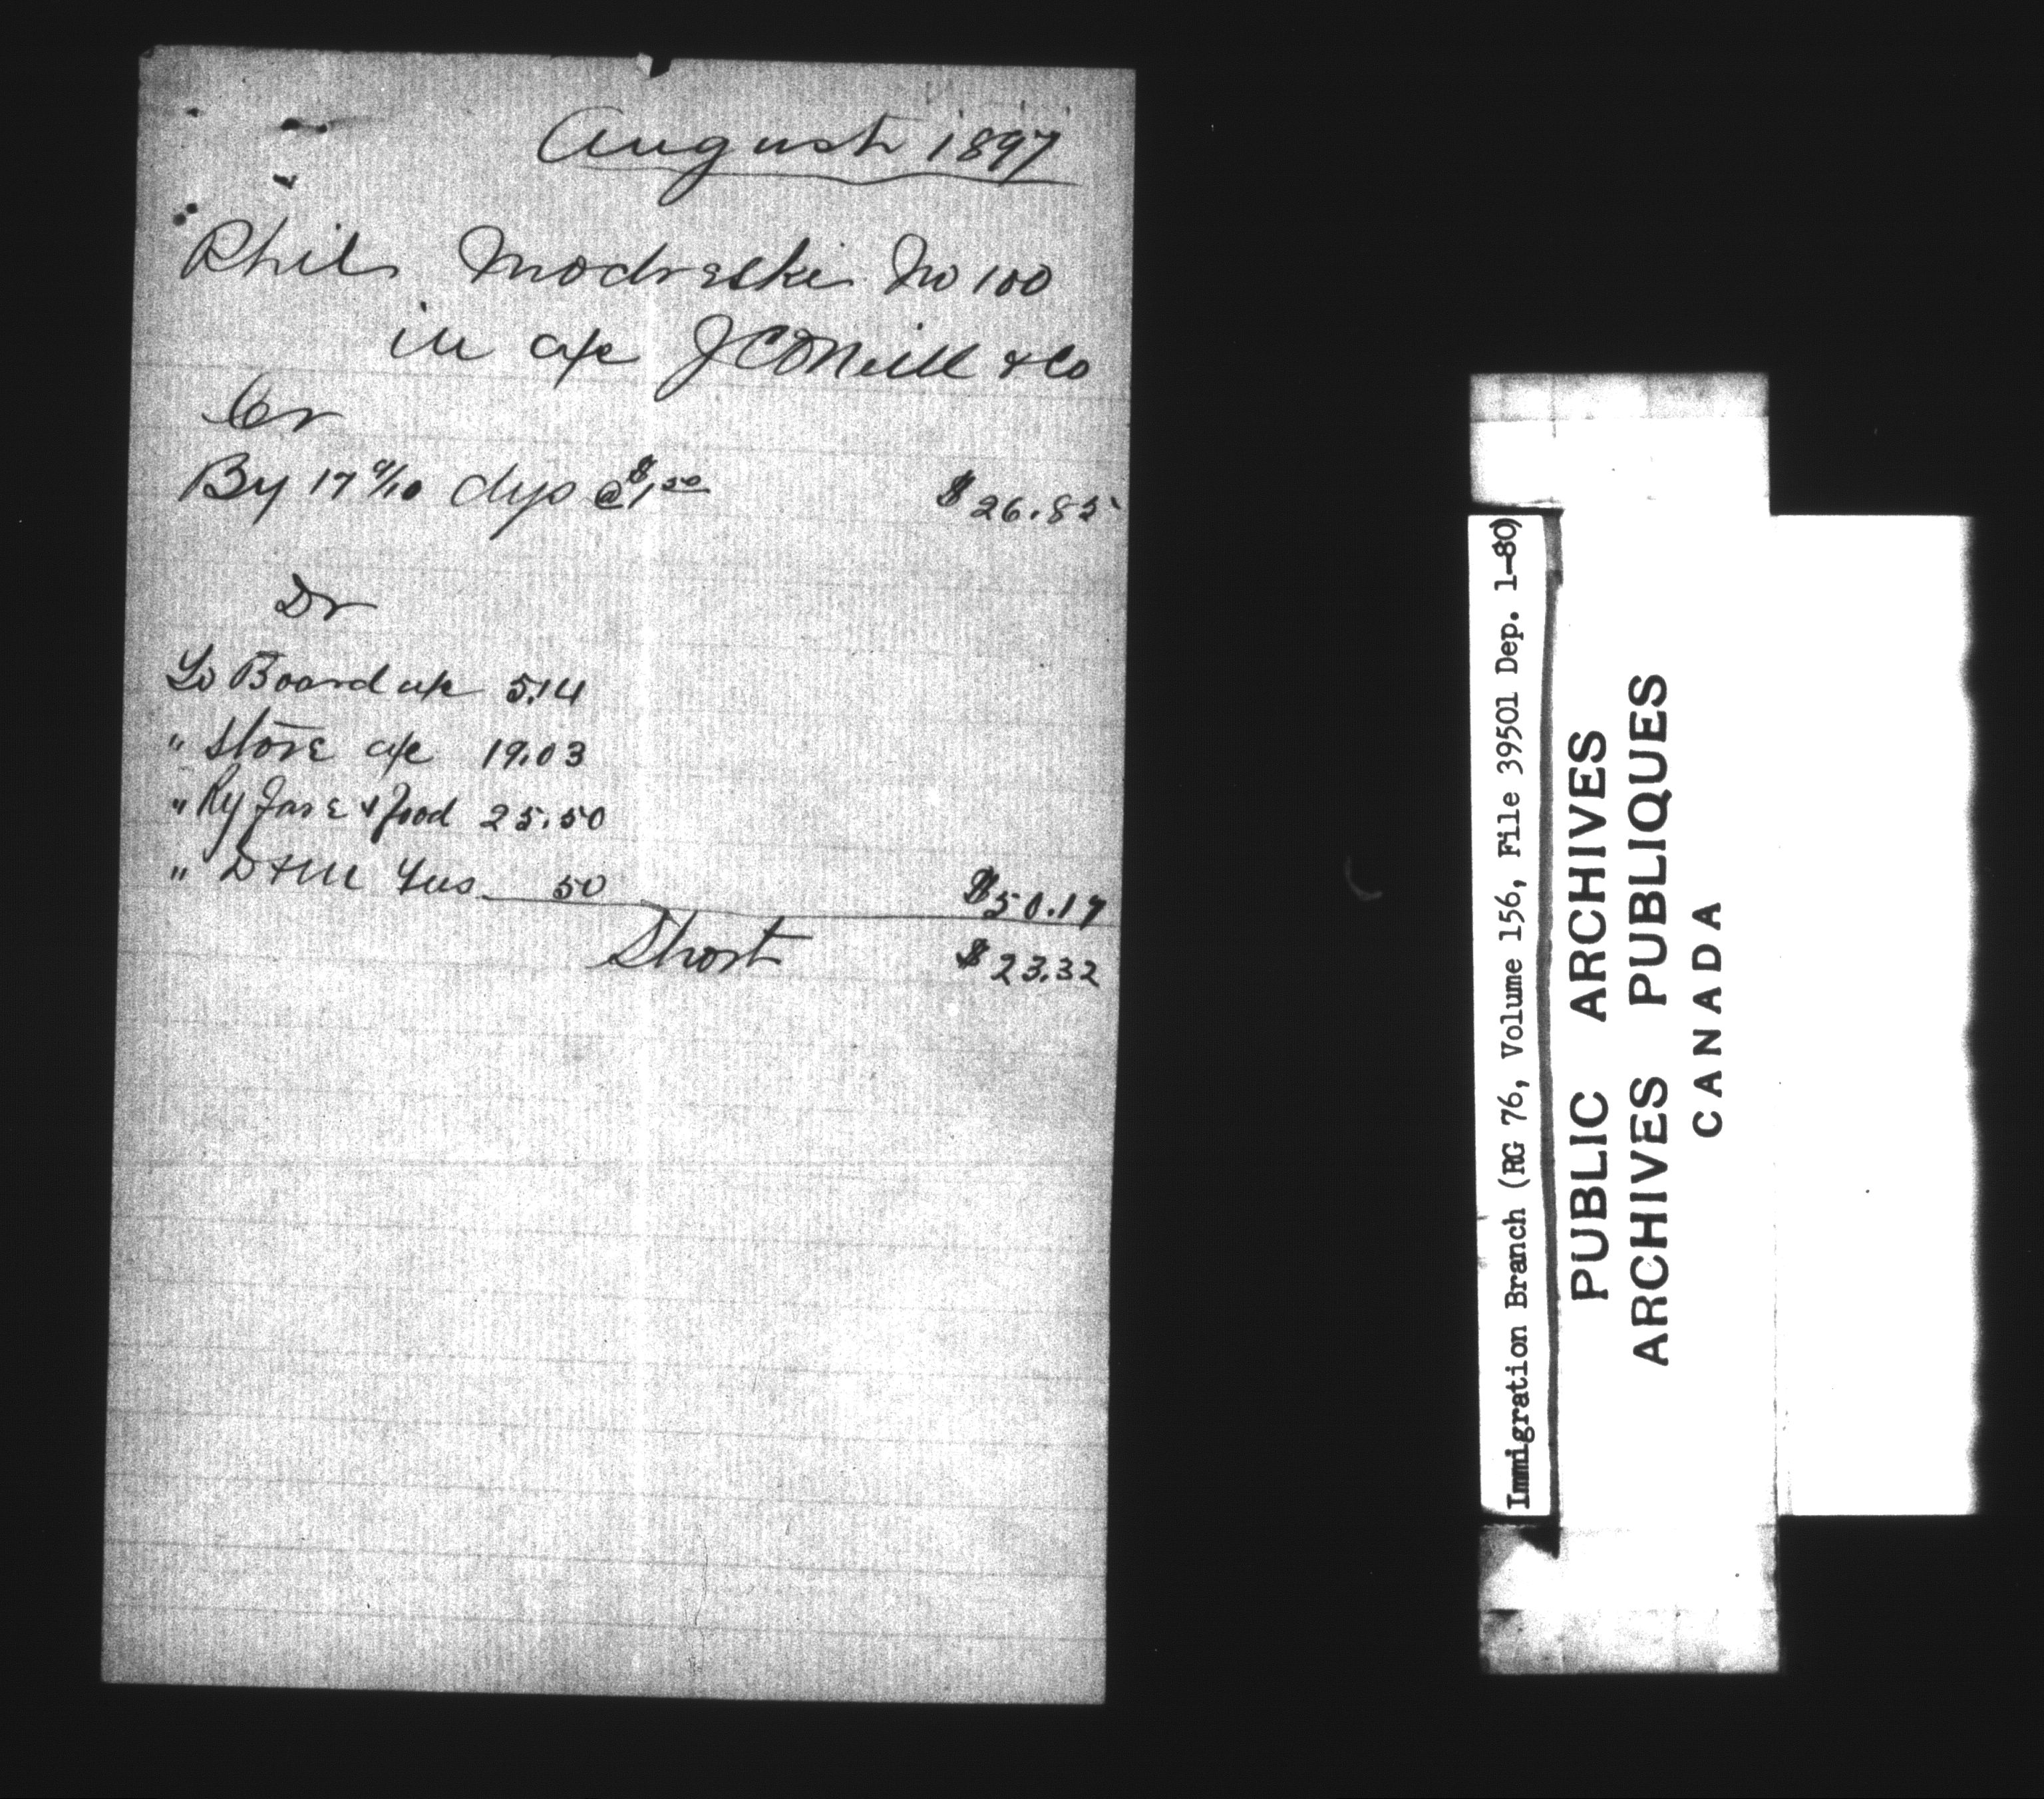 August 1897
Phil Modreski No 100
in a/c J C O'Neill & Co
Cr
By 17 9/10 dys @ $1.50 $26.85
Dr
To Board a/c 5.14
" Store a/c 19.03
" Ry Fare & food 25.50
" D & M Fees 50 $50.17
Short $23.32
Immigration Branch (RG 76, Volume 156, File 39501 Dep. 1-80)
PUBLIC ARCHIVES
ARCHIVES PUBLIQUES
CANADA